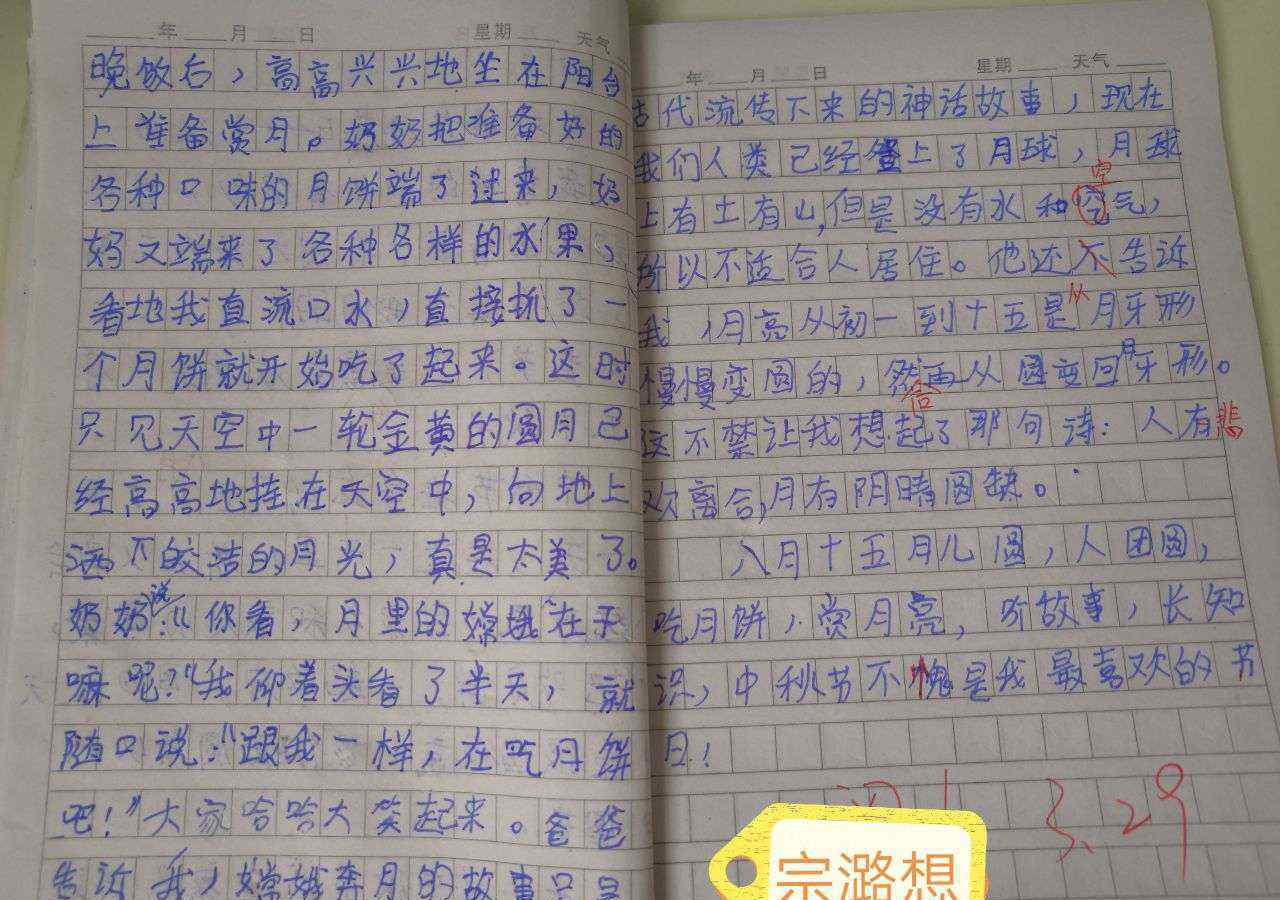 年 月 日 星期 天气
晚饭后，高高兴兴地坐在阳台
上准备赏月。奶奶把准备好的
各种口味的月饼端了过来，妈
妈又端来了各种各样的水果，
看地我直流口水，直接抓了一
个月饼就开始吃了起来。这时
只见天空中一轮金黄的圆月已
经高高地挂在天空中，向地上
洒下皎洁的月光，真是太美了。
奶奶说：“你看，月里的嫦娥在干
嘛呢？”我仰着头看了半天，就
随口说：“跟我一样，在吃月饼
吧！”大家哈哈大笑起来。爸爸
告诉我，嫦娥奔月的故事只是
年 月 日 星期 天气
古代流传下来的神话故事，现在
我们人类已经登上了月球，月球
空
上有土有山，但是没有水和空气，
所以不适合人居住。他还不告诉
我，月亮从初一到十五是从月牙形
慢慢变圆的，然再从圆变回月牙形。
合
这不禁让我想起了那句诗：人有悲
欢离合，月有阴晴圆缺。
八月十五月儿圆，人团圆，
吃月饼，赏月亮，听故事，长知
识，中秋节不愧是我最喜欢的节
日！
3.29
宗潞想